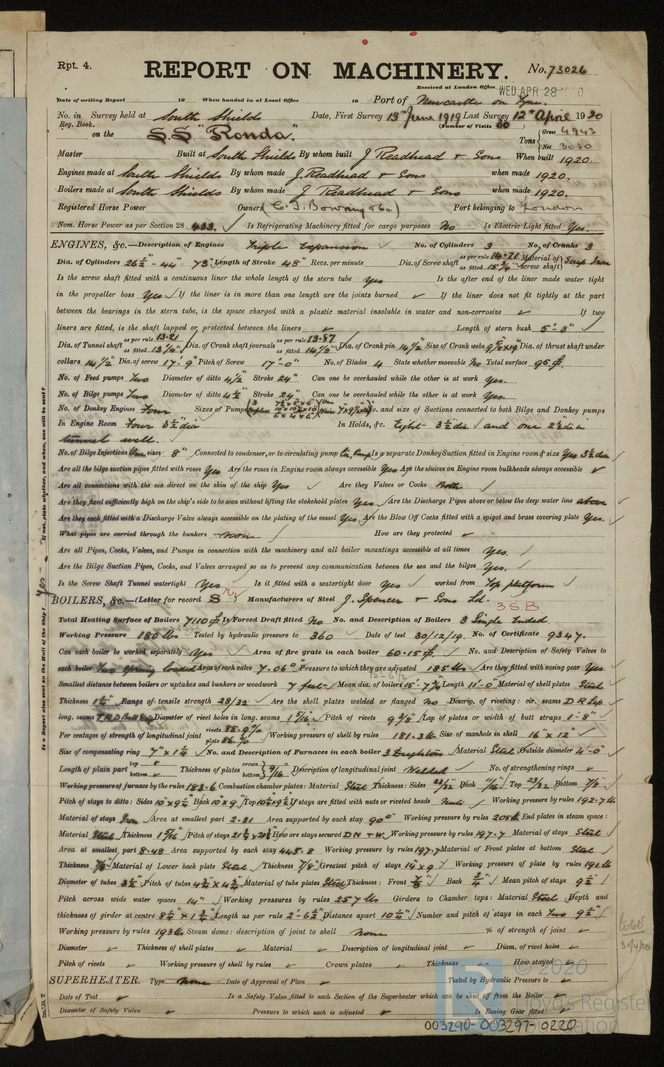 Rpt. 4.
REPORT ON MACHINERY.
No. 73026
Received at London Office WED. APR 28
Date of writing Report 19 When handed in at Local Office 19 Port of Newcastle on Tyne.
No. in Survey held at South Shields Date, First Survey 13th June 1919 Last Survey 12th April 1920
Reg. Book. (Number of Visits 80)
on the S.S. "Ronda". Tons Gross 4943
Net 3030
Master Built at South Shields By whom built J Readhead & Sons When built 1920.
Engines made at South Shields By whom made J. Readhead & Sons when made 1920.
Boilers made at South Shields By whom made J Readhead & Sons when made 1920.
Registered Horse Power Owners C. T. Bowring & Co. Port belonging to London
Nom. Horse Power as per Section 28 433. Is Refrigerating Machinery fitted for cargo purposes No Is Electric Light fitted Yes.
ENGINES, &c.—Description of Engines Triple Expansion No. of Cylinders 3 No. of Cranks 3
Dia. of Cylinders 26½" - 44" - 73" Length of Stroke 48" Revs. per minute Dia. of Screw shaft as per rule 14.71 as fitted 15¼" Material of screw shaft Scrap Iron
Is the screw shaft fitted with a continuous liner the whole length of the stern tube Yes Is the after end of the liner made water tight
in the propeller boss Yes If the liner is in more than one length are the joints burned If the liner does not fit tightly at the part
between the bearings in the stern tube, is the space charged with a plastic material insoluble in water and non-corrosive If two
liners are fitted, is the shaft lapped or protected between the liners Length of stern bush 5'-3"
Dia. of Tunnel shaft as per rule 13.21 as fitted 13¼" Dia. of Crank shaft journals as per rule 13.87 as fitted 14½" Dia. of Crank pin 14½" Size of Crank webs Dia. of thrust shaft under
collars 14½" Dia. of screw 17'-9" Pitch of Screw 17'-0" No. of Blades 4 State whether moveable No Total surface 95
No. of Feed pumps Two Diameter of ditto 4½" Stroke 24" Can one be overhauled while the other is at work Yes.
No. of Bilge pumps Two Diameter of ditto 4½" Stroke 24" Can one be overhauled while the other is at work Yes.
No. of Donkey Engines Four Sizes of Pumps No. and size of Suctions connected to both Bilge and Donkey pumps
In Engine Room Four 3½" dia In Holds, &c. Eight 3½" dia and one 2½" dia
tunnel well.
No. of Bilge Injections One sizes 8" Connected to condenser, or to circulating pump Cir. Pump Is a separate Donkey Suction fitted in Engine room & size Yes 3½" dia
Are all the bilge suction pipes fitted with roses Yes Are the roses in Engine room always accessible Yes Are the sluices on Engine room bulkheads always accessible
Are all connections with the sea direct on the skin of the ship Yes Are they Valves or Cocks Both
Are they fixed sufficiently high on the ship's side to be seen without lifting the stokehold plates Yes Are the Discharge Pipes above or below the deep water line above
Are they each fitted with a Discharge Valve always accessible on the plating of the vessel Yes Are the Blow Off Cocks fitted with a spigot and brass covering plate Yes.
What pipes are carried through the bunkers None How are they protected
Are all Pipes, Cocks, Valves, and Pumps in connection with the machinery and all boiler mountings accessible at all times Yes.
Are the Bilge Suction Pipes, Cocks, and Valves arranged so as to prevent any communication between the sea and the bilges Yes.
Is the Screw Shaft Tunnel watertight Yes Is it fitted with a watertight door Yes worked from Top platform
BOILERS, &c.—(Letter for record S) Manufacturers of Steel J. Spencer & Sons Ld. 3 S.B
Total Heating Surface of Boilers 7110 Is Forced Draft fitted No No. and Description of Boilers 3 Single Ended
Working Pressure 180 lbs Tested by hydraulic pressure to 360 Date of test 30/12/19. No. of Certificate 9347.
Can each boiler be worked separately Yes Area of fire grate in each boiler 60.15 No. and Description of Safety Valves to
each boiler Two Spring loaded Area of each valve 7.06" Pressure to which they are adjusted 185 lbs Are they fitted with easing gear Yes
Smallest distance between boilers or uptakes and bunkers or woodwork 7 feet Mean dia. of boilers Length 11'-0" Material of shell plates Steel
Thickness Range of tensile strength 28/32 Are the shell plates welded or flanged No Descrip. of riveting: cir. seams D R Lap
long. seams Diameter of rivet holes in long. seams Pitch of rivets Lap of plates or width of butt straps 1'-8"
Per centages of strength of longitudinal joint rivets plate Working pressure of shell by rules 181.3 lbs Size of manhole in shell 16" x 12"
Size of compensating ring 7" x 1¼" No. and Description of Furnaces in each boiler 3 Deightons Material Steel Outside diameter 4'-0"
Length of plain part top bottom Thickness of plates crown bottom 9/16 Description of longitudinal joint Welded No. of strengthening rings
Working pressure of furnace by the rules 183.6 Combustion chamber plates: Material Steel Thickness: Sides 23/32 Back 11/16 Top 23/32 Bottom 7/8
Pitch of stays to ditto: Sides Back Top If stays are fitted with nuts or riveted heads Nuts Working pressure by rules 192.7 lbs
Material of stays Iron Area at smallest part 2.31 Area supported by each stay 90" Working pressure by rules 205 lbs End plates in steam space:
Material Steel Thickness Pitch of stays How are stays secured D N + W. Working pressure by rules 197.7 Material of stays Steel
Area at smallest part 8.48 Area supported by each stay 445.8 Working pressure by rules 197.7 Material of Front plates at bottom Steel
Thickness 7/8 Material of Lower back plate Steel Thickness 7/8 Greatest pitch of stays 14 x 9 Working pressure of plate by rules 191 lbs
Diameter of tubes 3¼" Pitch of tubes 4½" x 4½" Material of tube plates Steel Thickness: Front Back 3/4 Mean pitch of stays 9½"
Pitch across wide water spaces 14" Working pressures by rules 257 lbs Girders to Chamber tops: Material Steel Depth and
thickness of girder at centre 8½" x 1¾" Length as per rule 2'-6½" Distance apart 10¼" Number and pitch of stays in each Two 9½"
Working pressure by rules 193 lbs Steam dome: description of joint to shell None % of strength of joint
Diameter Thickness of shell plates Material Description of longitudinal joint Diam. of rivet holes
Pitch of rivets Working pressure of shell by rules Crown plates Thickness How stayed
SUPERHEATER. Type None Date of Approval of Plan Tested by Hydraulic Pressure to
Date of Test Is a Safety Valve fitted to each Section of the Superheater which can be shut off from the Boiler
Diameter of Safety Valve Pressure to which each is adjusted Is Easing Gear fitted
© 2020
Lloyd's Register
Foundation
003290-003297-0220